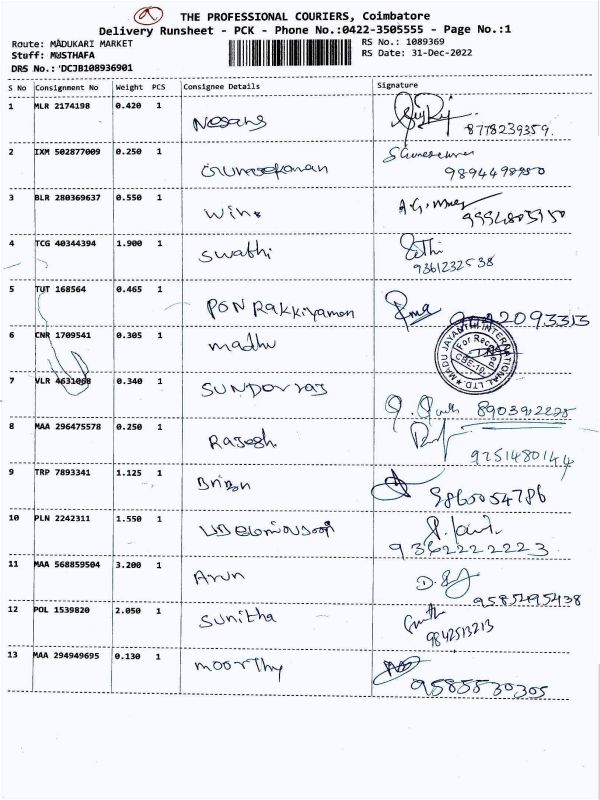 a
THE PROFESSIONAL COURIERS, Coimbatore
Delivery Runsheet - PCK - Phone No.:0422-3505555 - Page No.:1
Route: MADUKARI MARKET
RS No.: 1089369
Stuff: MUSTHAFA
RS Date: 31-Dec-2022
DRS No.: DCJB108936901
S No Consignment No Weight PCS Consignee Details Signature
1 MLR 2174198 0.420 1
8778239359.
2 IXM 502877009 0.250 1
9894498950
3 BLR 280369637 0.550 1
4 TCG 40344394 1.900 1 Swathi
9361232538
5 TUT 168564 0.465 1 PON Rakkiyamman
6 CNR 1709541 0.305 1 madhu
MADU JAYANTHI INTERNATIONAL LTD.
For Received
CBE-10
7 VLR 4631068 0.340 1 SUNDOVRAJ
8903902285
8 MAA 296475578 0.250 1 Rajesh.
9251480144
9 TRP 7893341 1.125 1
9860054786
10 PLN 2242311 1.550 1
9362222223
11 MAA 568859504 3.200 1 Arun
9585495438
12 POL 1539820 2.050 1 Sunitha
9842513213
13 MAA 294949695 0.130 1 moorthy
9585530305